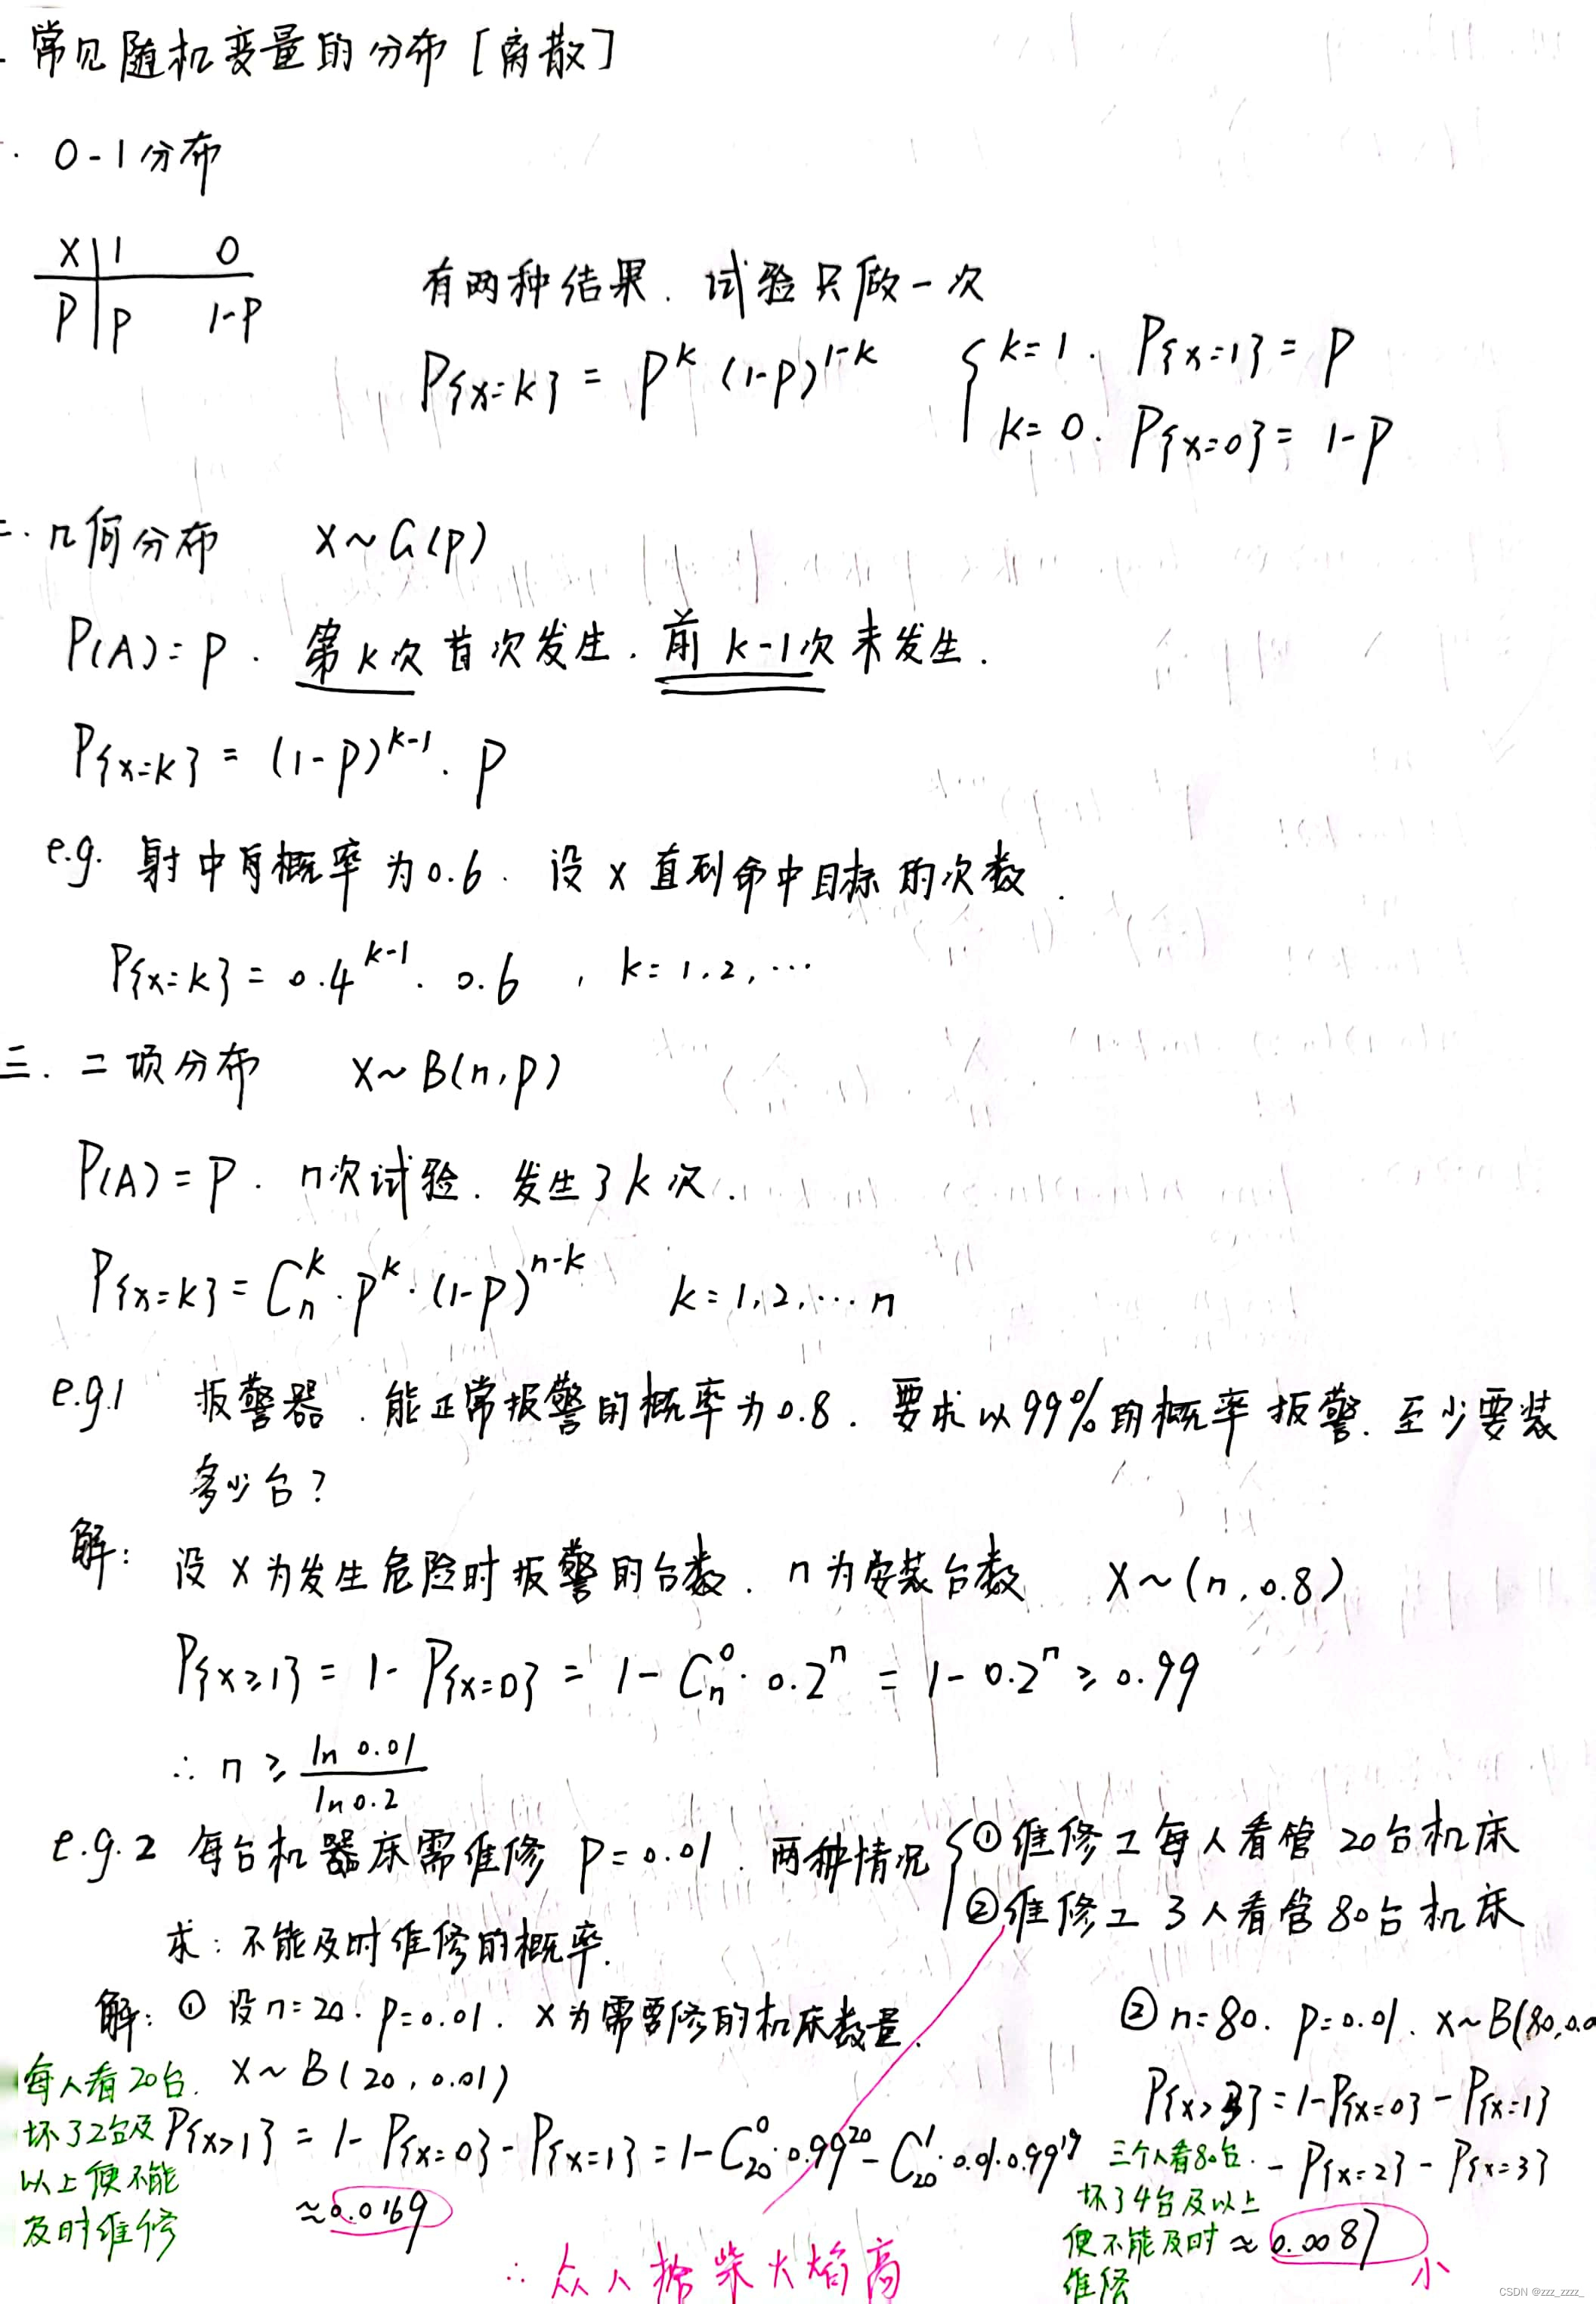 常见随机变量的分布 [离散]
0-1分布
X | 1 0
P | P 1-P
有两种结果. 试验只做一次
P{x=k} = P^k (1-P)^{1-k} { k=1. P{x=1} = P
k=0. P{x=0} = 1-P
二. 几何分布 X~G(p)
P(A)=P. 第k次首次发生. 前k-1次未发生.
P{x=k} = (1-P)^{k-1}. P
e.g. 射中概率为0.6. 设X直到命中目标的次数.
P{x=k} = 0.4^{k-1}. 0.6 , k=1.2,…
三. 二项分布 X~B(n,p)
P(A)=P. n次试验. 发生了k次.
P{x=k} = C_n^k · P^k · (1-P)^{n-k} k=1,2,…n
e.g.1 报警器. 能正常报警的概率为0.8. 要求以99%的概率报警. 至少要装
多少台?
解: 设X为发生危险时报警的台数. n为安装台数 X~(n,0.8)
P{x≥1} = 1- P{x=0} = 1- C_n^0 · 0.2^n = 1-0.2^n ≥ 0.99
∴ n ≥ ln0.01/ln0.2
e.g.2 每台机器床需维修 P=0.01. 两种情况 { ①维修工每人看管20台机床
②维修工3人看管80台机床
求: 不能及时维修的概率.
解: ① 设n=20. P=0.01. X为需要修的机床数量.
X~B(20,0.01)
P{x>1} = 1- P{x=0} - P{x=1} = 1- C_20^0 · 0.99^20 - C_20^1 · 0.01·0.99^19
≈0.0169
每人看20台.
坏了2台及
以上便不能
及时维修
② n=80. P=0.01. X~B(80,0.0
P{x>3} = 1-P{x=0} - P{x=1}
- P{x=2} - P{x=3}
≈ 0.0087
小
三个人看80台.
坏了4台及以上
便不能及时
维修
∴ 众人拾柴火焰高
CSDN @zzz_zzzz_